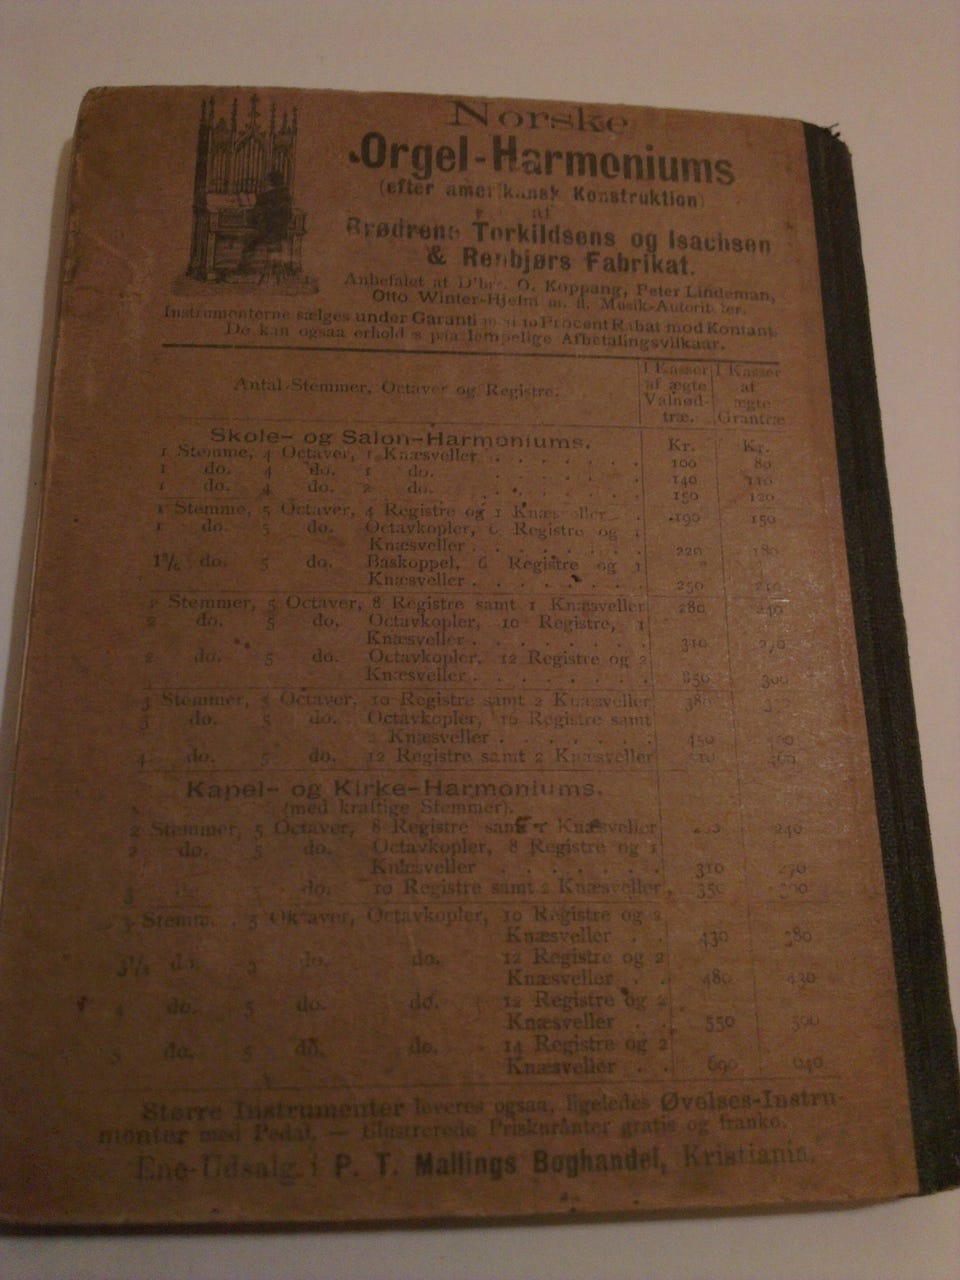 Norske
Orgel-Harmoniums
(efter amerikansk Konstruktion)
af
Brødrene Torkildsens og Isachsen
& Renbjørs Fabrikat.
Anbefalet af D'hrr. O. Koppang, Peter Lindeman,
Otto Winter-Hjelm m. fl. Musik-Autoriteter.
Instrumenterne sælges under Garanti 10 Procent Rabat mod Kontant.
De kan ogsaa erholdes paa lempelige Afbetalingsvilkaar.
Antal Stemmer, Octaver og Registre.
I Kasser af ægte Valnødtræ.
I Kasser af ægte Grantræ
Skole- og Salon-Harmoniums. Kr. Kr.
1 Stemme, 4 Octaver, 1 Knæsveller 100 80
1 do. 4 do. 1 do. 140 110
1 do. 4 do. 2 do. 150 120
1 Stemme, 5 Octaver, 4 Registre og 1 Knæsveller 190 150
1 do. 5 do. Octavkopler, 6 Registre og 1
Knæsveller 220 180
do. 5 do. Baskoppel, 6 Registre og 1
Knæsveller 250 210
2 Stemmer, 5 Octaver, 8 Registre samt 1 Knæsveller 280 240
2 do. 5 do. Octavkopler, 10 Registre, 1
Knæsveller 310 270
2 do. 5 do. Octavkopler, 12 Registre og 2
Knæsveller 350 300
3 Stemmer, 5 Octaver, 10 Registre samt 2 Knæsveller 380
3 do. 5 do. Octavkopler, 10 Registre samt
2 Knæsveller 450
4 do. 5 do. 12 Registre samt 2 Knæsveller 510 460
Kapel- og Kirke-Harmoniums.
(med kraftige Stemmer).
2 Stemmer, 5 Octaver, 8 Registre samt 1 Knæsveller 240
2 do. 5 do. Octavkopler, 8 Registre og 1
Knæsveller 310 270
3 do. 5 do. 10 Registre samt 2 Knæsveller 350 300
3 Stemm., 5 Oktaver, Octavkopler, 10 Registre og 2
Knæsveller 430 380
3½ do. 5 do. do. 12 Registre og 2
Knæsveller 480 430
4 do. 5 do. do. 12 Registre og 2
Knæsveller 550 500
5 do. 5 do. do. 14 Registre og 2
Knæsveller 690 640
Større Instrumenter leveres ogsaa, ligeledes Øvelses-Instru-
menter med Pedal. — Illustrerede Priskuranter gratis og franko.
Ene-Udsalg i P. T. Mallings Boghandel, Kristiania.